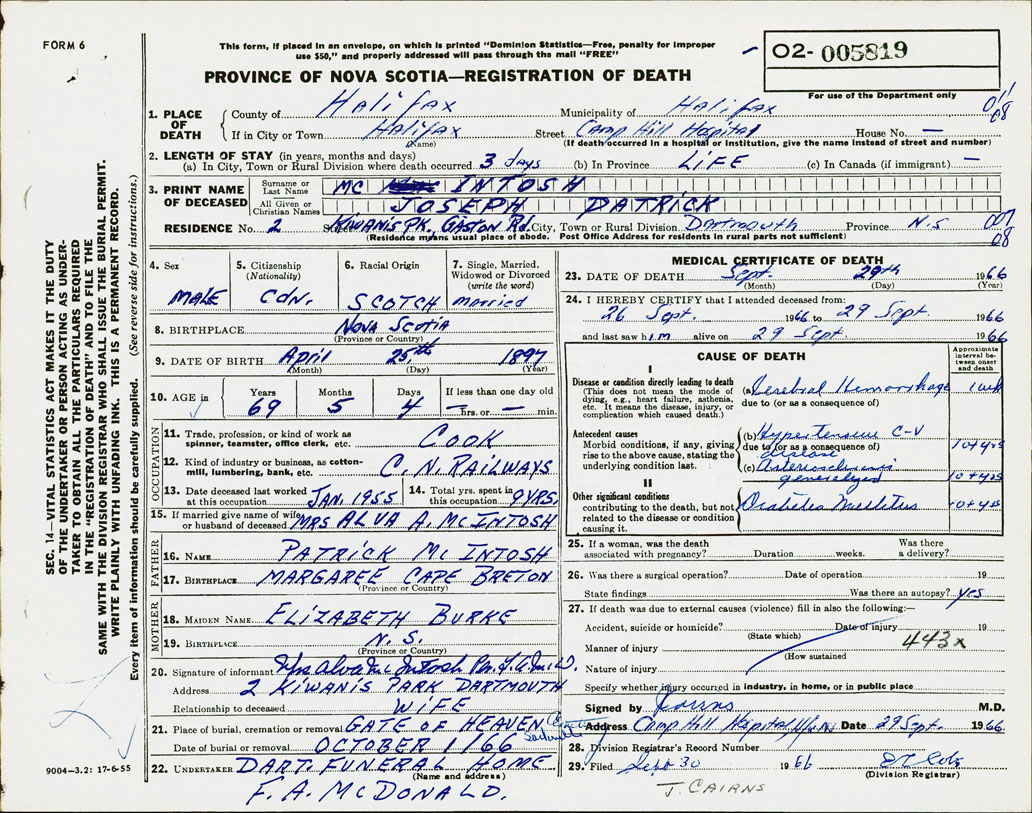 FORM 6
This form, if placed in an envelope, on which is printed "Dominion Statistics—Free, penalty for improper
use $50," and properly addressed will pass through the mail "FREE"
PROVINCE OF NOVA SCOTIA—REGISTRATION OF DEATH
02- 005819
For use of the Department only
1. PLACE OF DEATH
County of Halifax Municipality of Halifax 011 08
If in City or Town Halifax Street Camp Hill Hospital House No. —
(Name) (If death occurred in a hospital or institution, give the name instead of street and number)
2. LENGTH OF STAY (in years, months and days)
(a) In City, Town or Rural Division where death occurred 3 days (b) In Province LIFE (c) In Canada (if immigrant) —
3. PRINT NAME OF DECEASED
Surname or Last Name MC INTOSH
All Given or Christian Names JOSEPH PATRICK
RESIDENCE No. 2 Kiwanis Pk, Gaston Rd. City, Town or Rural Division Dartmouth Province N.S 007 08
(Residence means usual place of abode. Post Office Address for residents in rural parts not sufficient)
4. Sex MALE
5. Citizenship (Nationality) Cdn.
6. Racial Origin SCOTCH
7. Single, Married, Widowed or Divorced (write the word) married
8. BIRTHPLACE NOVA SCOTIA
(Province or Country)
9. DATE OF BIRTH April 25th 1897
(Month) (Day) (Year)
10. AGE in Years 69 Months 5 Days 4 If less than one day old — hrs. or — min.
OCCUPATION
11. Trade, profession, or kind of work as spinner, teamster, office clerk, etc. COOK
12. Kind of industry or business, as cotton-mill, lumbering, bank, etc. C. N. RAILWAYS
13. Date deceased last worked at this occupation JAN. 1955
14. Total yrs. spent in this occupation 9 YRS.
15. If married give name of wife or husband of deceased MRS ALVA A. MCINTOSH
FATHER
16. NAME PATRICK MC INTOSH
17. BIRTHPLACE MARGAREE CAPE BRETON
(Province or Country)
MOTHER
18. MAIDEN NAME ELIZABETH BURKE
19. BIRTHPLACE N. S.
(Province or Country)
20. Signature of informant Mrs Alva Mc Intosh
Address 2 KIWANIS PARK DARTMOUTH
Relationship to deceased WIFE
21. Place of burial, cremation or removal GATE OF HEAVEN
Date of burial or removal OCTOBER 1/66
22. UNDERTAKER DART. FUNERAL HOME
(Name and address)
F. A. MCDONALD.
MEDICAL CERTIFICATE OF DEATH
23. DATE OF DEATH Sept. 29th 1966
(Month) (Day) (Year)
24. I HEREBY CERTIFY that I attended deceased from:
26 Sept. 1966 to 29 Sept. 1966
and last saw him alive on 29 Sept. 1966
CAUSE OF DEATH
Approximate interval between onset and death
I
Disease or condition directly leading to death
(This does not mean the mode of dying, e.g., heart failure, asthenia, etc. It means the disease, injury, or complication which caused death.)
(a) Cerebral Hemorrhage 1 wk
due to (or as a consequence of)
Antecedent causes
Morbid conditions, if any, giving rise to the above cause, stating the underlying condition last.
(b) Hypertensive C-V disease 10+yrs
due to (or as a consequence of)
(c) Arteriosclerosis generalized 10+yrs
II
Other significant conditions
contributing to the death, but not related to the disease or condition causing it.
Diabetes Mellitus 10+yrs
25. If a woman, was the death associated with pregnancy? Duration weeks. Was there a delivery?
26. Was there a surgical operation? Date of operation 19
State findings Was there an autopsy? yes
27. If death was due to external causes (violence) fill in also the following:—
Accident, suicide or homicide? Date of injury 19
(State which)
Manner of injury 443x
(How sustained)
Nature of injury
Specify whether injury occurred in industry, in home, or in public place
Signed by Cairns M.D.
Address Camp Hill Hospital Date 29 Sept. 1966.
28. Division Registrar's Record Number
29. Filed Sept 30 1966
(Division Registrar)
J. CAIRNS
SEC. 14—VITAL STATISTICS ACT MAKES IT THE DUTY
OF THE UNDERTAKER OR PERSON ACTING AS UNDER-
TAKER TO OBTAIN ALL THE PARTICULARS REQUIRED
IN THE "REGISTRATION OF DEATH" AND TO FILE THE
SAME WITH THE DIVISION REGISTRAR WHO SHALL ISSUE THE BURIAL PERMIT.
WRITE PLAINLY WITH UNFADING INK. THIS IS A PERMANENT RECORD.
Every item of information should be carefully supplied. (See reverse side for instructions.)
9004-3.2: 17-6-55